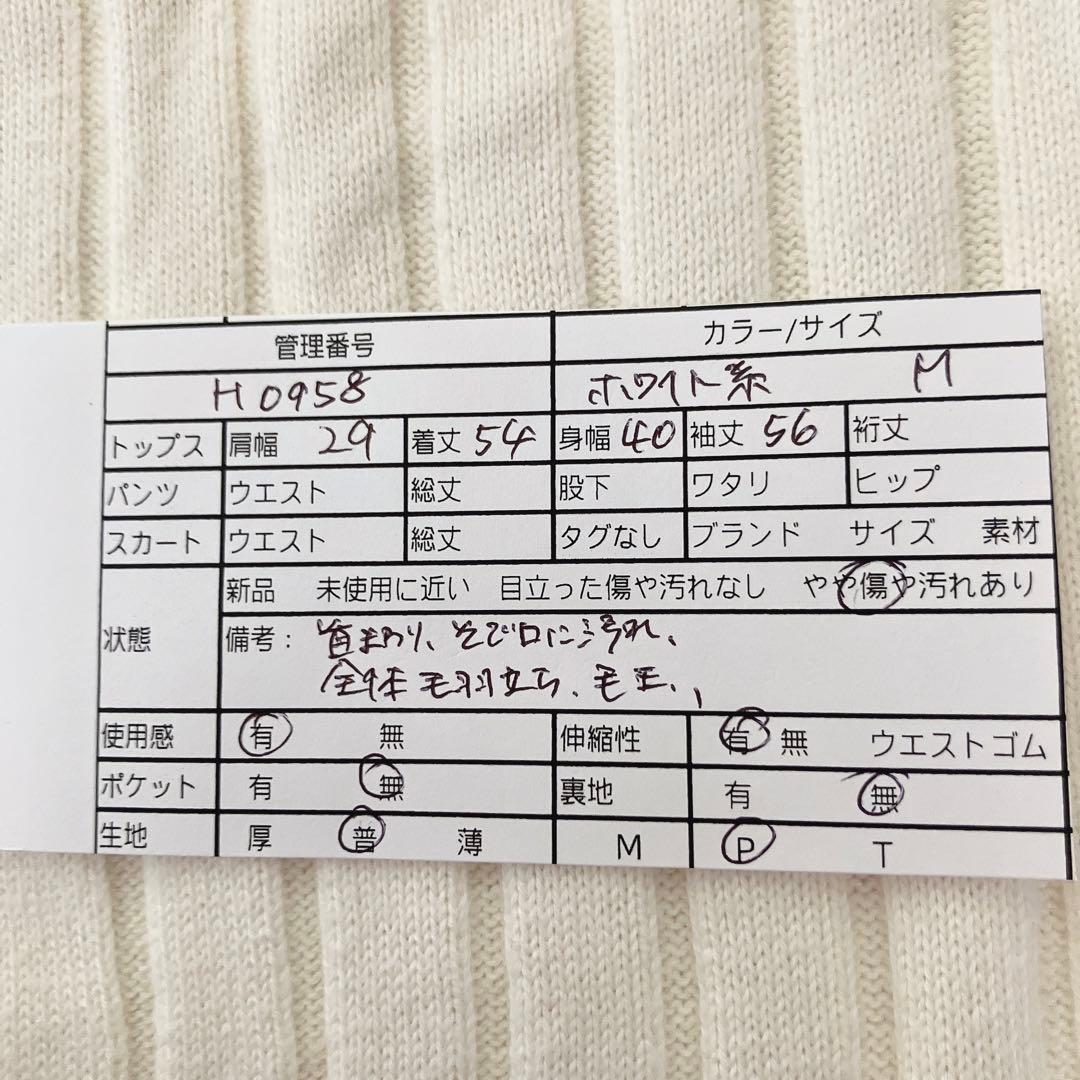 管理番号 カラー/サイズ
H0958 ホワイト系 M
トップス 肩幅 29 着丈 54 身幅 40 袖丈 56 裄丈
パンツ ウエスト 総丈 股下 ワタリ ヒップ
スカート ウエスト 総丈 タグなし ブランド サイズ 素材
状態 新品 未使用に近い 目立った傷や汚れなし やや傷や汚れあり
備考: 首まわり、そで口に汚れ、
全体毛羽立ち、毛玉、
使用感 有 無 伸縮性 有 無 ウエストゴム
ポケット 有 無 裏地 有 無
生地 厚 普 薄 M P T